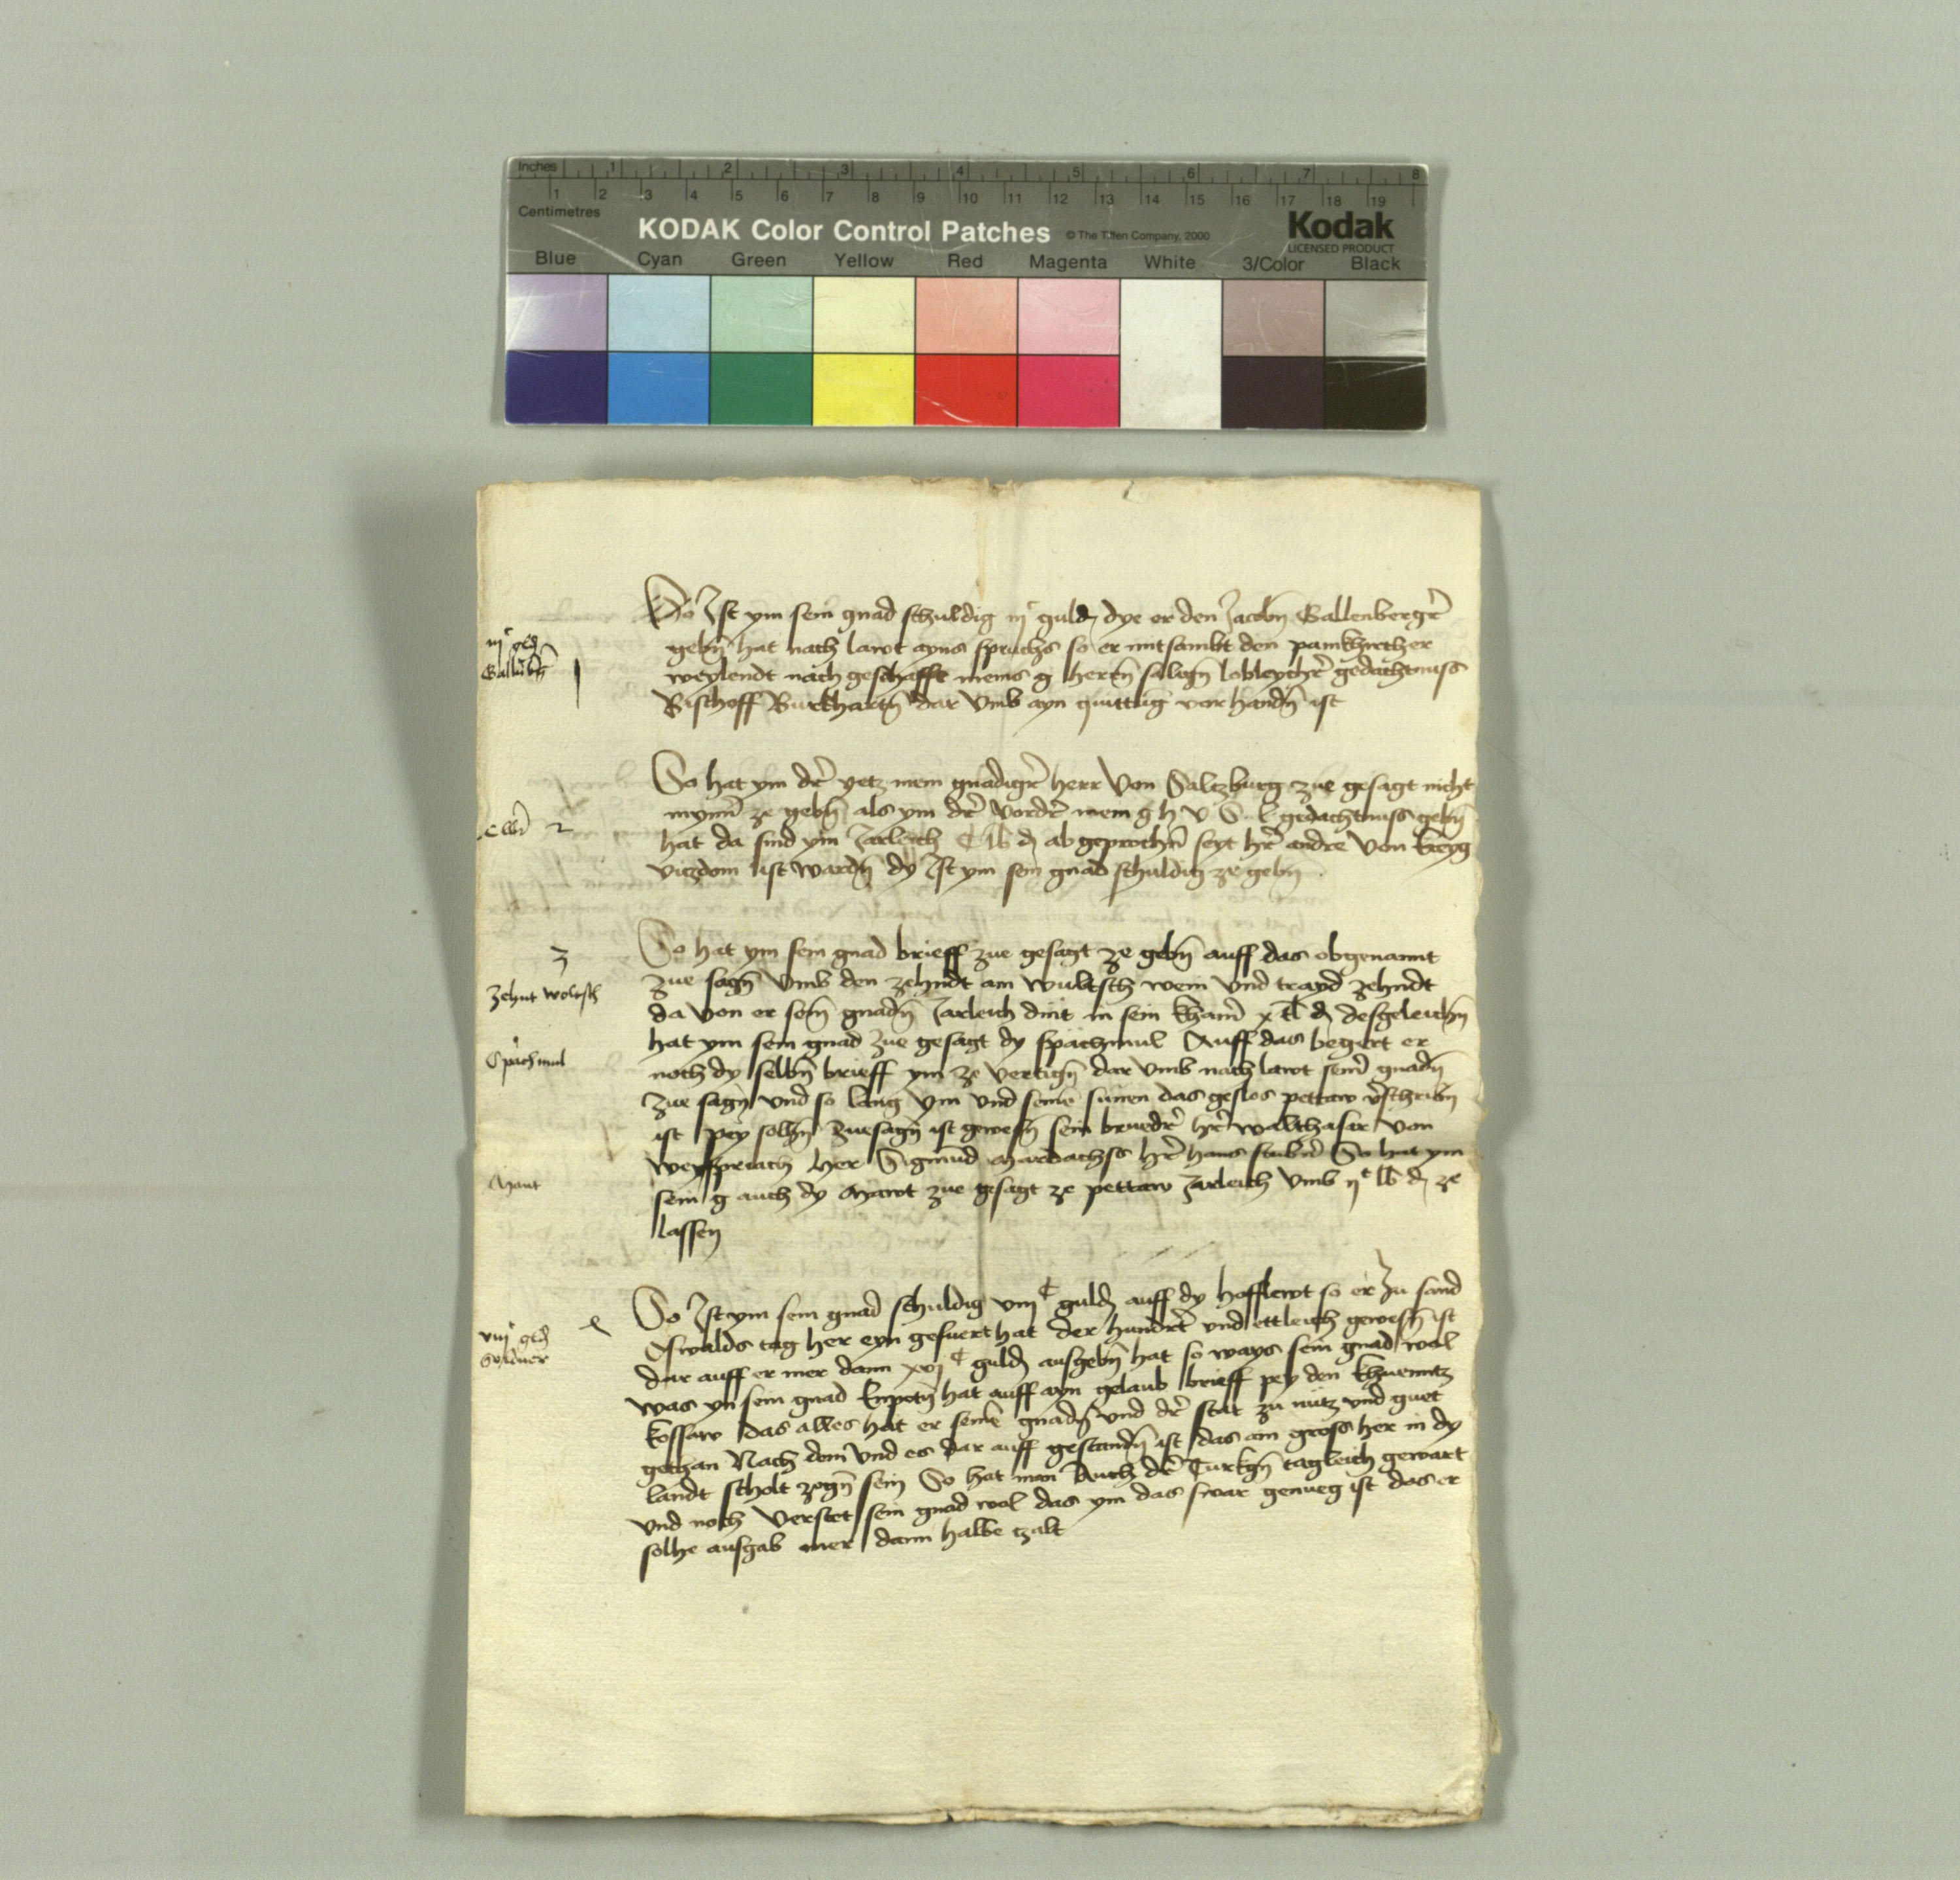 Inches 1 2 3 4 5 6 7 8
1 2 3 4 5 6 7 8 9 10 11 12 13 14 15 16 17 18 19
Centimetres
KODAK Color Control Patches © The Tiffen Company, 2000 Kodak
LICENSED PRODUCT
Blue Cyan Green Yellow Red Magenta White 3/Color Black
So Ist ym sein gnad schuldig iijc guldn dye er den Jacobn Gallenberger
gebn hat nach lawt ayns spruchs so er mitsambt den pamkhircher
weylendt nach geschafft meins g herrn salign lobleycher gedachtnuss
Bischoff Burkhartn dar vmb ayn quittung vor handn ist
iijc gldn
1
So hat ym der yetz mein gnadiger herr Von Saltzburg zue gesagt nicht
mynner ze gebn als ym der Vorder mein g h v S l gedachtnuss gebn
hat da sind ym Jarleich C lb dn ab geprochn seyt her andre Von kreyg
vitzdom ist wardn dy Ist ym sein gnad schuldig ze gebn
2
So hat ym sein gnad brieff zue gesagt ze gebn auff das obgenannt
zue sagn Vmb den zehndt am wultsch wein Vnd trayd zehndt
da Von er sein gnadn Jarleich dint in sein khamer x tl dn desgeleichn
hat ym sein gnad zue gesagt dy spachmul Auff das begert er
noch dy selbn brieff ym ze Vertign dar Vmb nach lawt seiner gnadn
zue sagn Vnd so lang Ym Vnd seine sunen das geslos pettaw verschribn
ist pey solhn zuesagn ist gewesn sein brueder her walthasar Von
Weyspriach her Sigmund mardachss her hans stubner So hat ym
sein g auch dy Mawt zue gesagt ze pettaw Jarleich Vmb ijc lb dn ze
lassen
3
zehnt woltsch
Spachmul
Maut
So Ist ym sein gnad schuldig viijc guldn auff dy hofflewt so er zu sand
Oswalds tag her eyn gefuert hat der hundert vnd ettleich gewesn ist
dar auff er mer dann xvjc guldn ausgebn hat so ways sein gnad wol
was yn sein gnad Enpotn hat auff ayn gelaub brieff pey den khuenntz
kossaw das alles hat er seine gnadn vnd der stat zu nutz vnd guet
gethan Nach dem Vnd es dar auff gestandn ist das ain gross her in dy
landt scholt zogn sein So hat man Auch der Turkgn tagleich gewart
vnd noch Verstet sein gnad wol das ym das swar genueg ist das er
solhe ausgab mer dann halbe tzalt
viijc gldn
Soldner